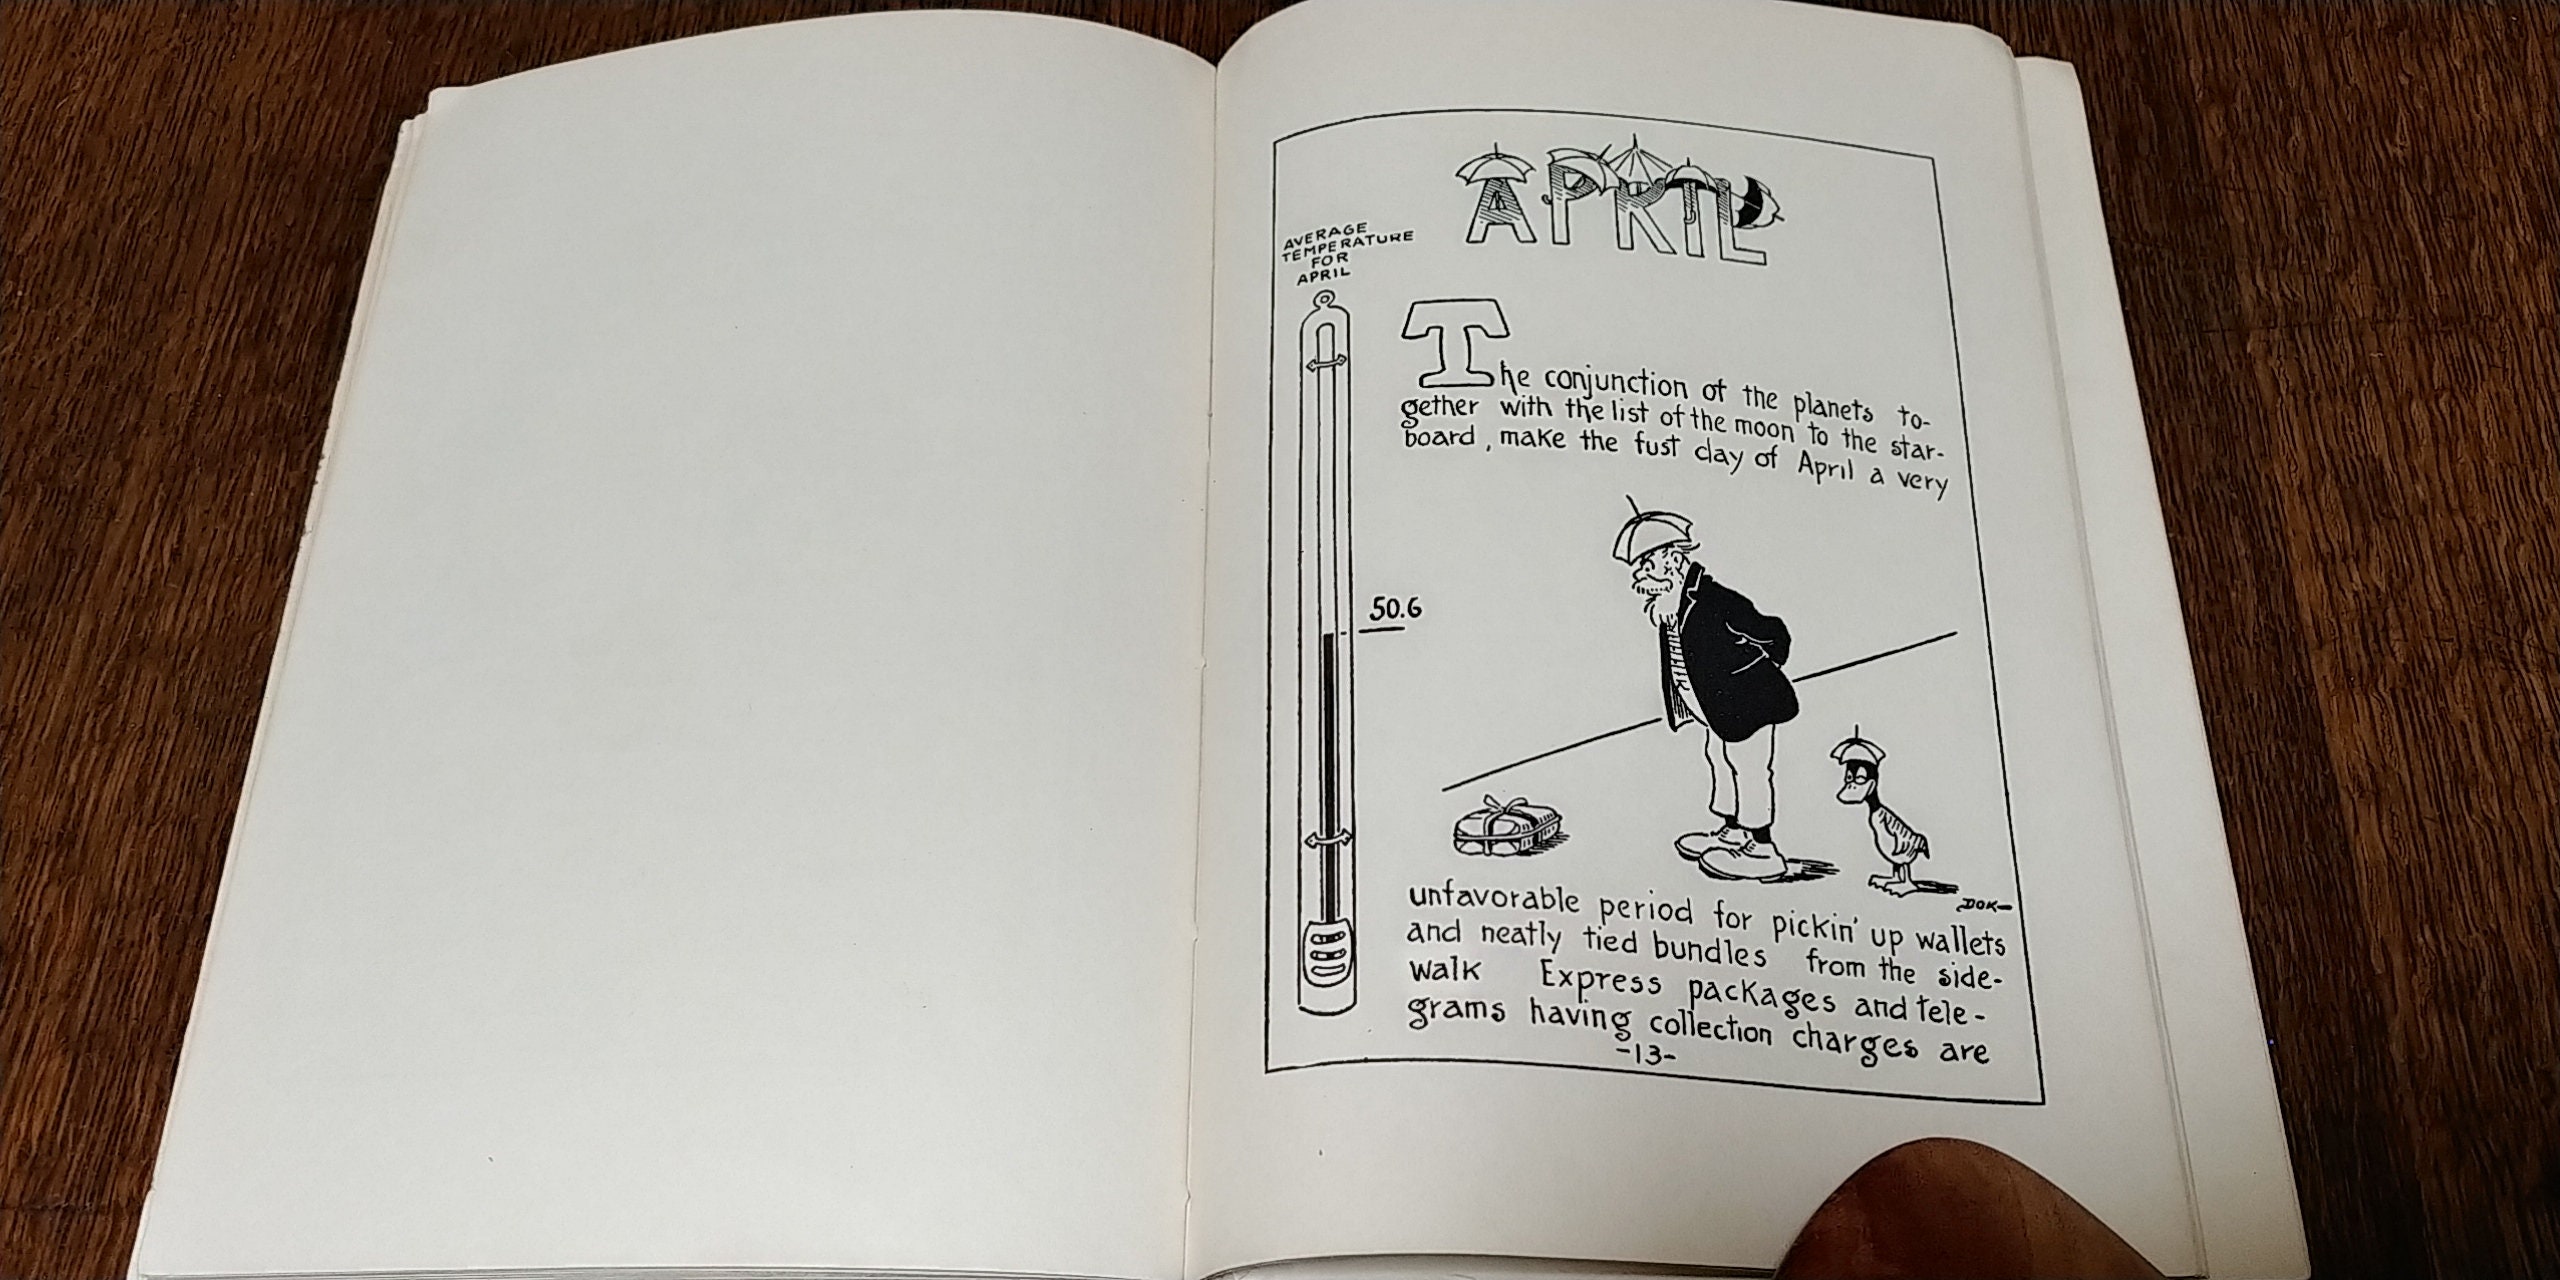 APRIL
AVERAGE
TEMPERATURE
FOR
APRIL
The conjunction of the planets to-
gether with the list of the moon to the star-
board, make the fust day of April a very
50.6
DOK
unfavorable period for pickin' up wallets
and neatly tied bundles from the side-
walk Express packages and tele-
grams having collection charges are
-13-